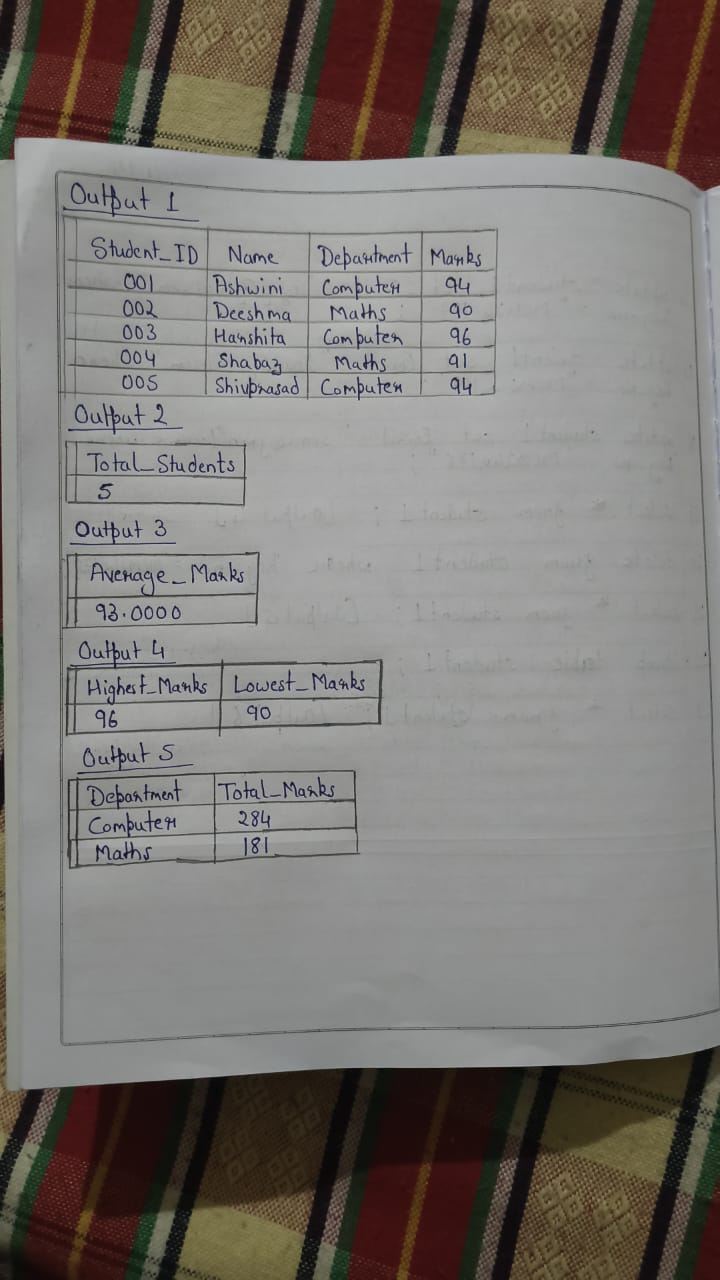 Output 1
Student_ID Name Department Marks
001 Ashwini Computer 94
002 Deeshma Maths 90
003 Harshita Computer 96
004 Shabaz Maths 91
005 Shivprasad Computer 94
Output 2
Total_Students
5
Output 3
Average_Marks
93.0000
Output 4
Highest_Marks Lowest_Marks
96 90
Output 5
Department Total_Marks
Computer 284
Maths 181